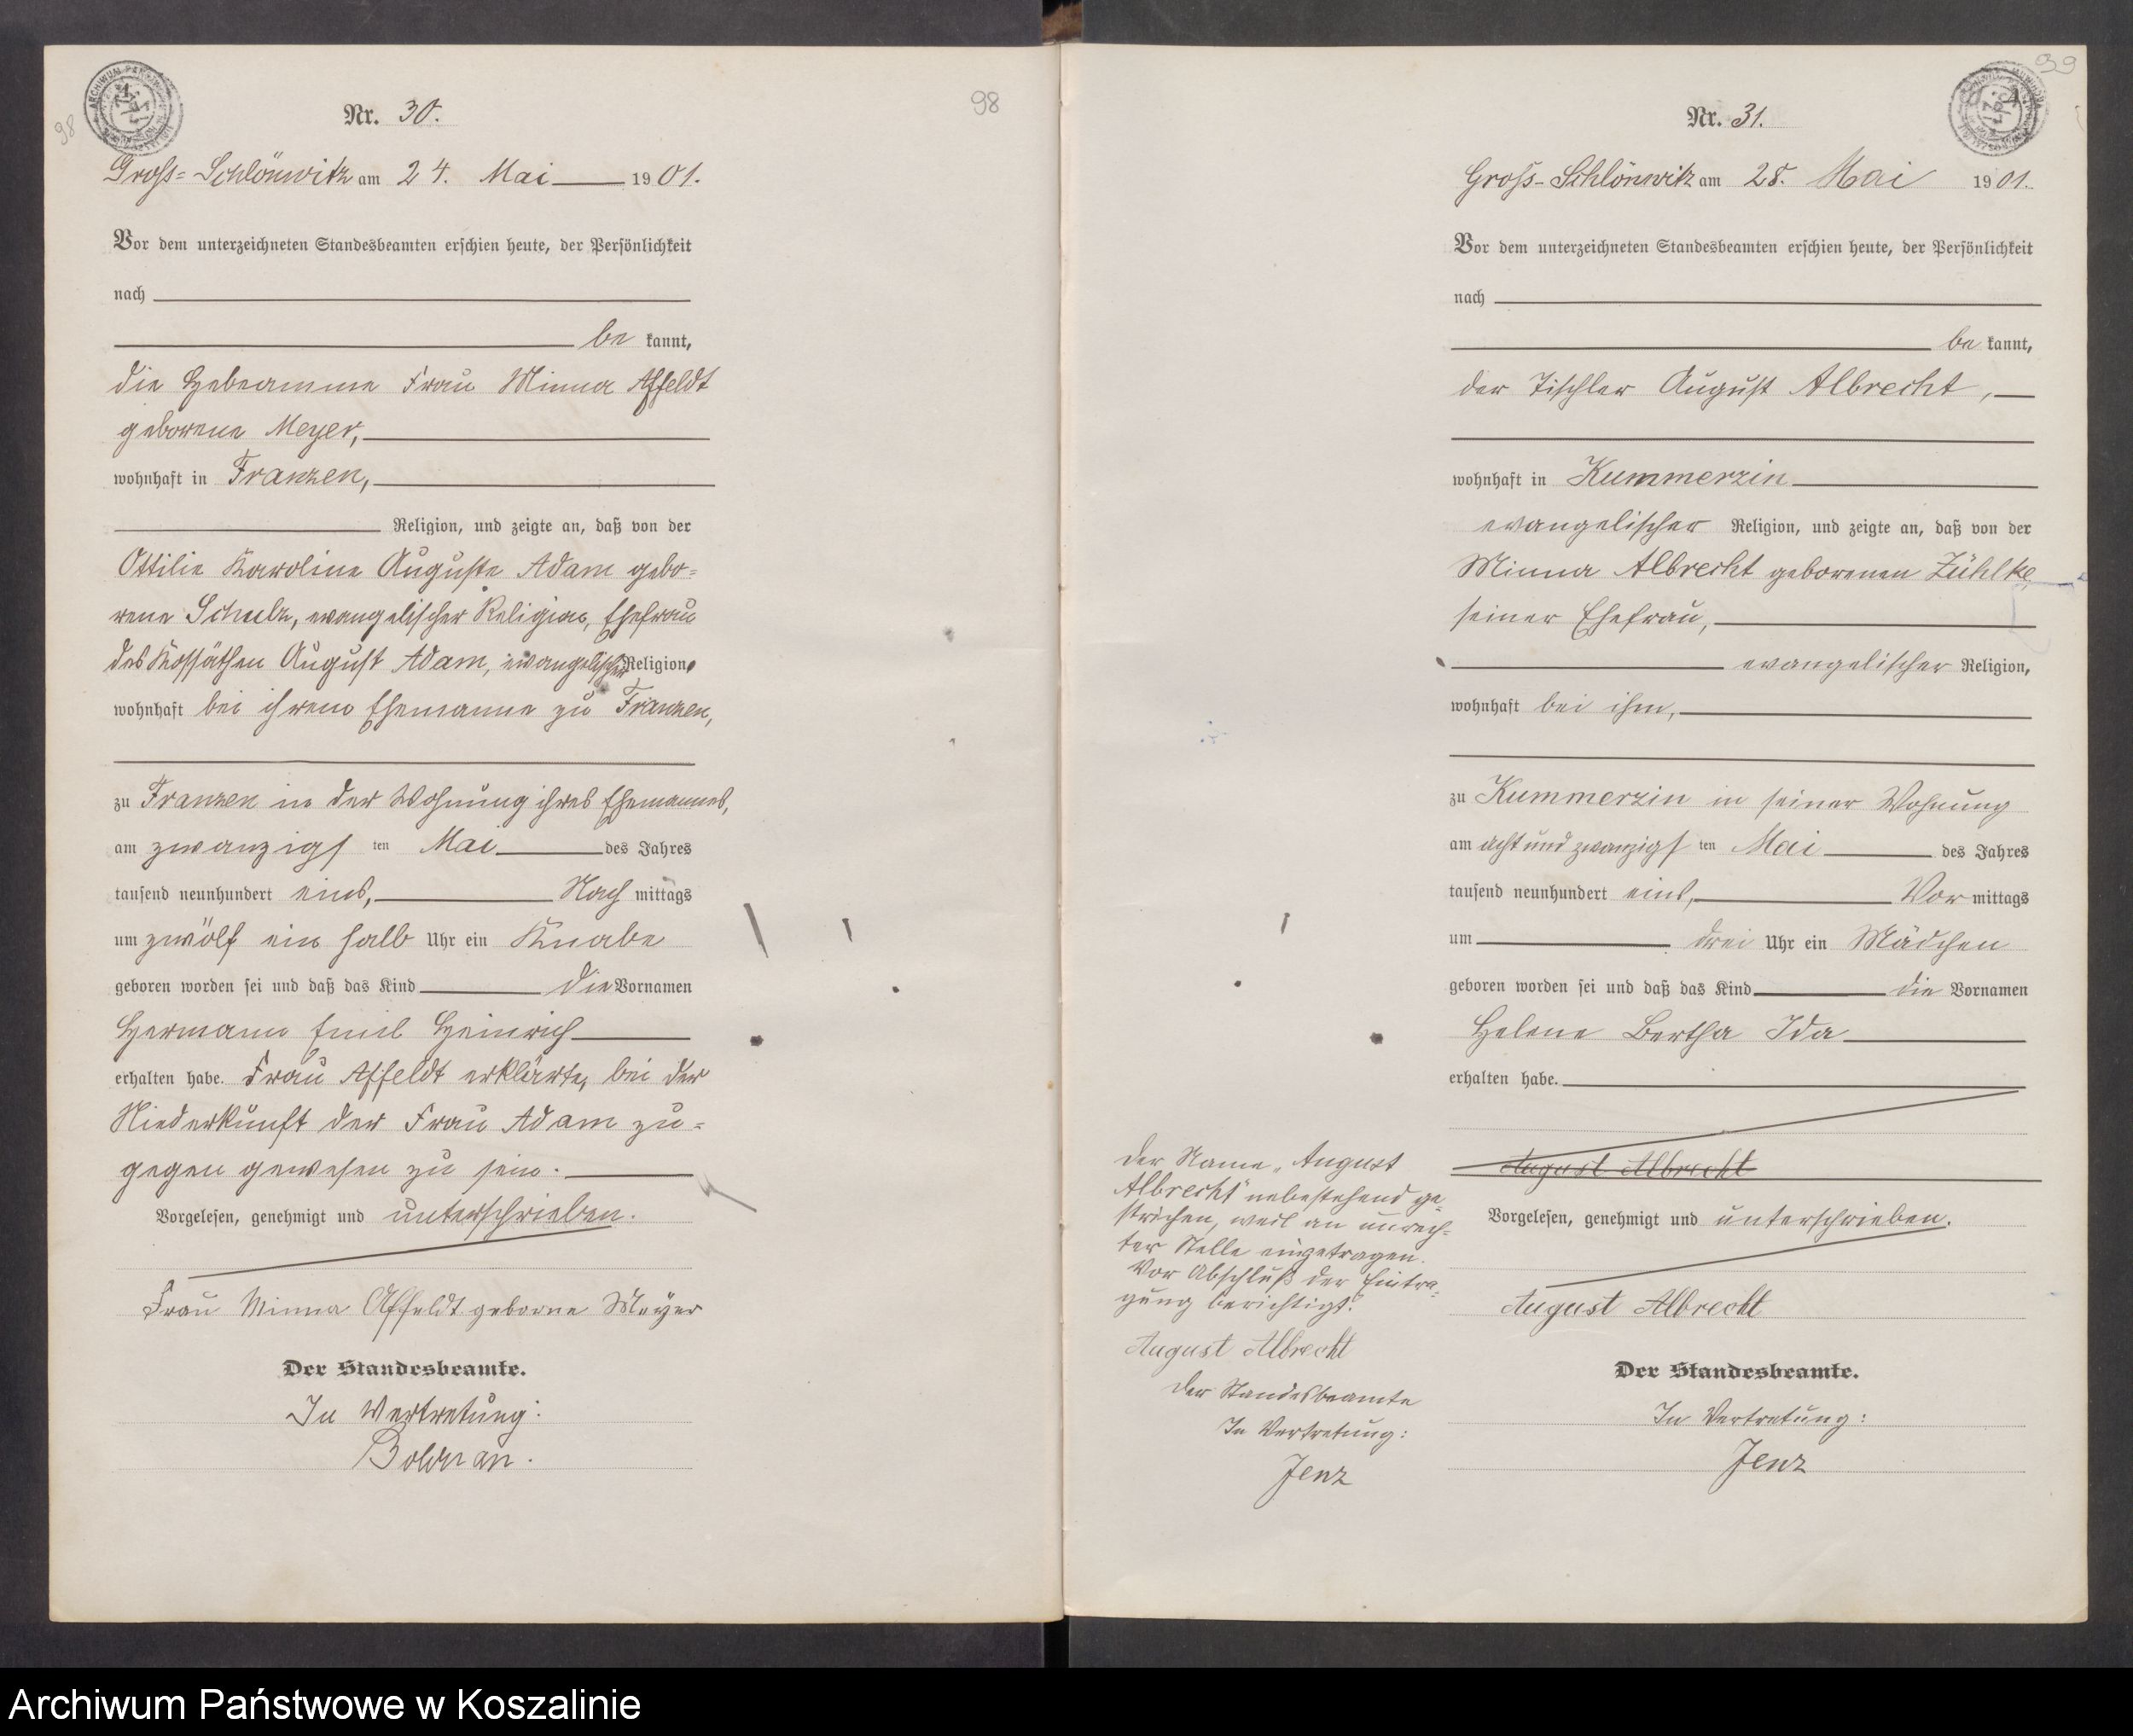 98
Nr. 30.
Gross-Schlönwitz am 24. Mai 1901.
Vor dem unterzeichneten Standesbeamten erschien heute, der Persönlichkeit
nach
be kannt,
die Hebeamme Frau Minna Affeldt
geborene Meyer,
wohnhaft in Franzen,
Religion, und zeigte an, daß von der
Ottilie Karoline Auguste Adam gebo-
rene Schulz, evangelischer Religion, Ehefrau
des Kossäthen August Adam, evangelischer Religion,
wohnhaft bei ihrem Ehemanne zu Franzen,
zu Franzen in der Wohnung ihres Ehemannes,
am zwanzigs ten Mai des Jahres
tausend neunhundert eins, Nach mittags
um zwölf ein halb Uhr ein Knabe
geboren worden sei und daß das Kind die Vornamen
Hermann Emil Heinrich
erhalten habe. Frau Affeldt erklärte, bei der
Niederkunft der Frau Adam zu-
gegen gewesen zu sein.
Vorgelesen, genehmigt und unterschrieben.
Frau Minna Affeldt geborne Meyer
Der Standesbeamte.
In Vertretung:
98
99
Nr. 31.
Gross-Schlönwitz am 28. Mai 1901.
Vor dem unterzeichneten Standesbeamten erschien heute, der Persönlichkeit
nach
be kannt,
der Tischler August Albrecht,
wohnhaft in Kummerzin
evangelischer Religion, und zeigte an, daß von der
Minna Albrecht geborenen Zühlke,
seiner Ehefrau,
evangelischer Religion,
wohnhaft bei ihm,
zu Kummerzin in seiner Wohnung
am acht und zwanzigs ten Mai des Jahres
tausend neunhundert eins, Vor mittags
um drei Uhr ein Mädchen
geboren worden sei und daß das Kind die Vornamen
Helene Bertha Ida
erhalten habe.
August Albrecht
Vorgelesen, genehmigt und unterschrieben.
August Albrecht
Der Standesbeamte.
In Vertretung:
Jenz
Der Name „August
Albrecht" nebestehend ge-
strichen, weil an unrech-
ter Stelle eingetragen.
Vor Abschluß der Eintra-
gung berichtigt.
August Albrecht
Der Standesbeamte
In Vertretung:
Jenz
Archiwum Państwowe w Koszalinie